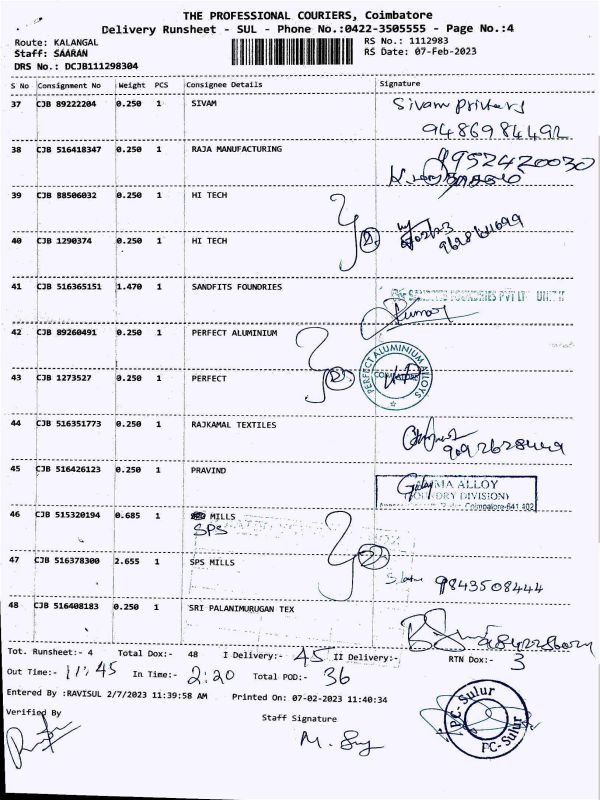 THE PROFESSIONAL COURIERS, Coimbatore
Delivery Runsheet - SUL - Phone No.:0422-3505555 - Page No.:4
Route: KALANGAL RS No.: 1112983
Staff: SAARAN RS Date: 07-Feb-2023
DRS No.: DCJB111298304
S No Consignment No Weight PCS Consignee Details Signature
37 CJB 89222204 0.250 1 SIVAM Sivam printers
9486984492
38 CJB 516418347 0.250 1 RAJA MANUFACTURING 9952420030
39 CJB 88506032 0.250 1 HI TECH
40 CJB 1290374 0.250 1 HI TECH 2
41 CJB 516365151 1.470 1 SANDFITS FOUNDRIES SANDFITS FOUNDRIES PVT LT UNIT
Kumar
42 CJB 89260491 0.250 1 PERFECT ALUMINIUM
43 CJB 1273527 0.250 1 PERFECT 2 PERFECT ALUMINIUM ALLOYS
44 CJB 516351773 0.250 1 RAJKAMAL TEXTILES
9092628449
45 CJB 516426123 0.250 1 PRAVIND MA ALLOY
(FOUNDRY DIVISION)
Coimbatore-641 402
46 CJB 515320194 0.685 1 MILLS
SPS
47 CJB 516378300 2.655 1 SPS MILLS 2 9843508444
48 CJB 516408183 0.250 1 SRI PALANIMURUGAN TEX
Tot. Runsheet:- 4 Total Dox:- 48 I Delivery:- 45 II Delivery:- RTN Dox:- 3
Out Time:- 11:45 In Time:- 2:20 Total POD:- 36
Entered By :RAVISUL 2/7/2023 11:39:58 AM Printed On: 07-02-2023 11:40:34
Verified By Staff Signature PC-Sulur
PC-Sulur